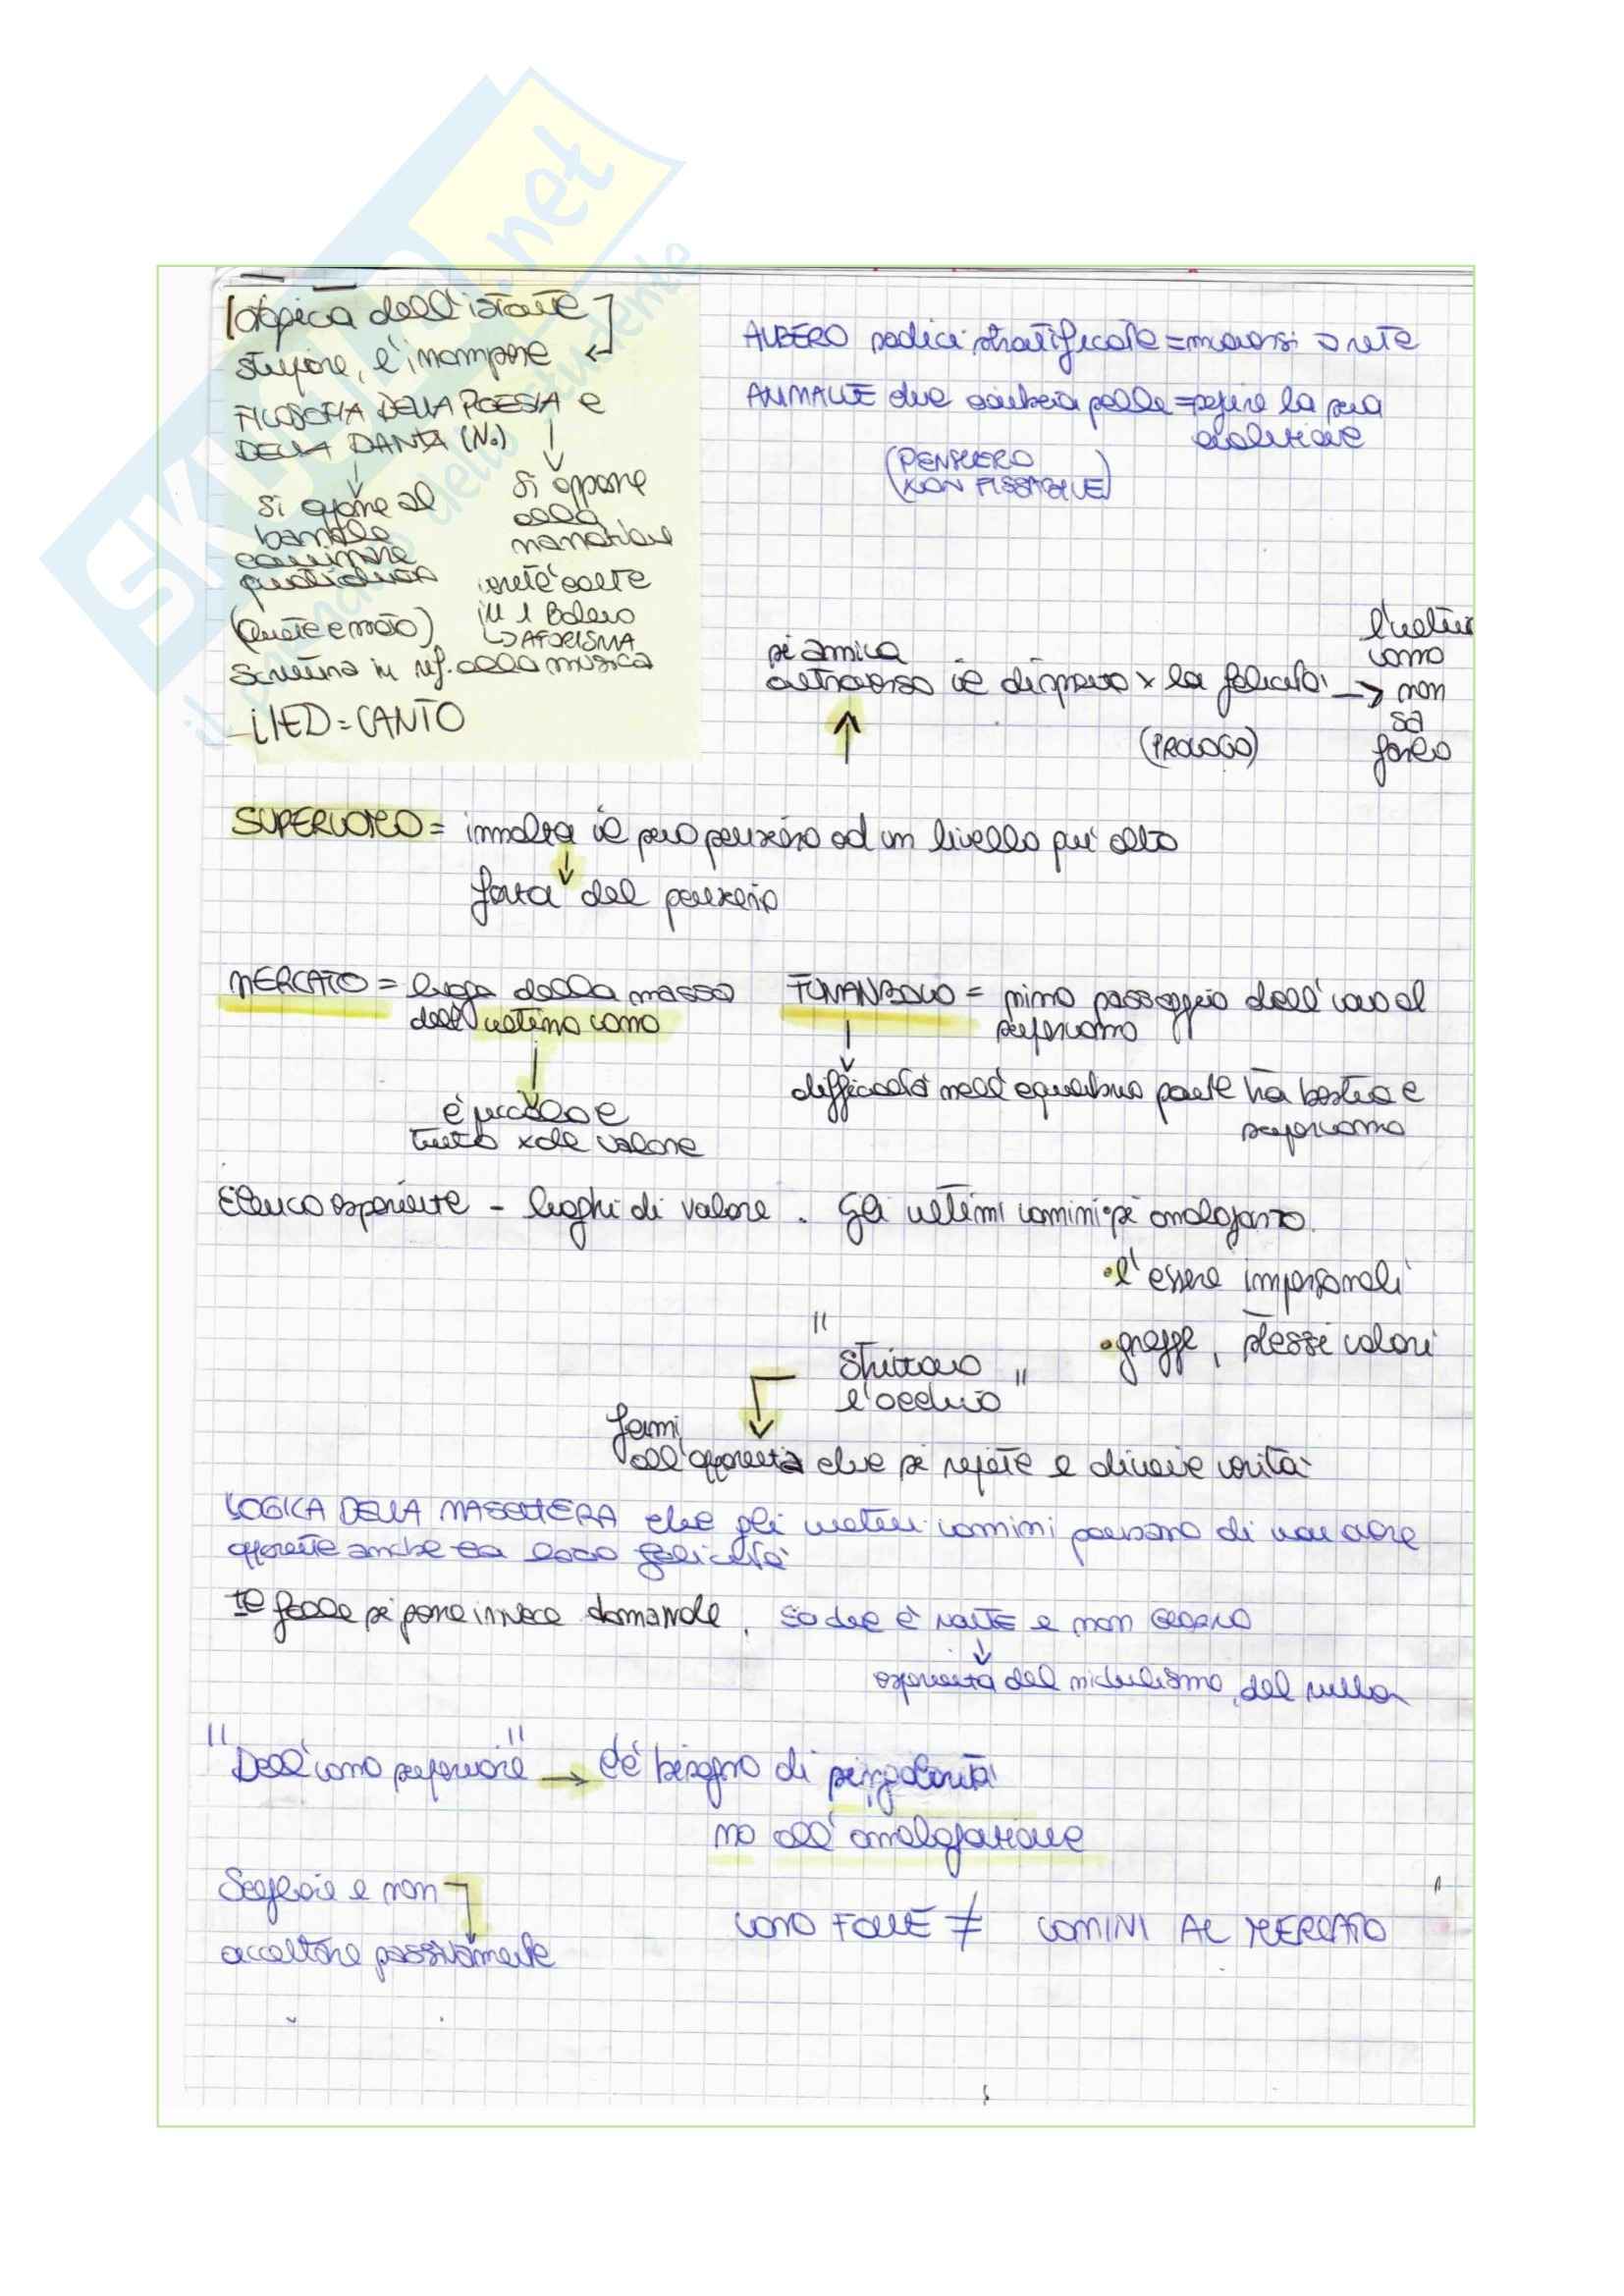 SKUOLA.net
il paradiso dello studente
dell'istante
stupore, l'irrompere
FILOSOFIA DELLA POESIA e
DELLA DANZA (N.)
si oppone al
banale
quotidiano
si oppone
alla
narrazione
AFORISMA
scrittura in rif. alla musica
LIED = CANTO
ALBERO radici stratificate = muoversi a rete
ANIMALE che cambia pelle = la sua
evoluzione
(PENSIERO
NON FISSABILE)
si
attraverso il disprezzo x la felicità → non
l'ultimo
uomo
sa
farlo
(PROLOGO)
SUPERUOMO = innalza il suo pensiero ad un livello più alto
forza del pensiero
MERCATO = luogo della massa
dell'ultimo uomo
è piccolo e
tutto xde valore
FUNAMBOLO = primo passaggio dell'uomo al
superuomo
difficoltà nell'equilibrio ponte tra bestia e
superuomo
Elenco esperienze - luoghi di valore. Gli ultimi uomini si omologano.
• l'essere impersonali
• gregge, stessi valori
"Strizzano
l'occhio"
fermi
all'apparenza che si ripete e diviene verità
LOGICA DELLA MASCHERA che gli ultimi uomini pensano di non avere
apparente anche la loro felicità
Il folle si pone invece domande, sa che è notte e non giorno
esperienza del nichilismo, del nulla
"Dell'uomo superiore" → c'è bisogno di singolarità
no all'omologazione
Scegliere e non
accettare passivamente
UOMO FOLLE ≠ UOMINI AL MERCATO